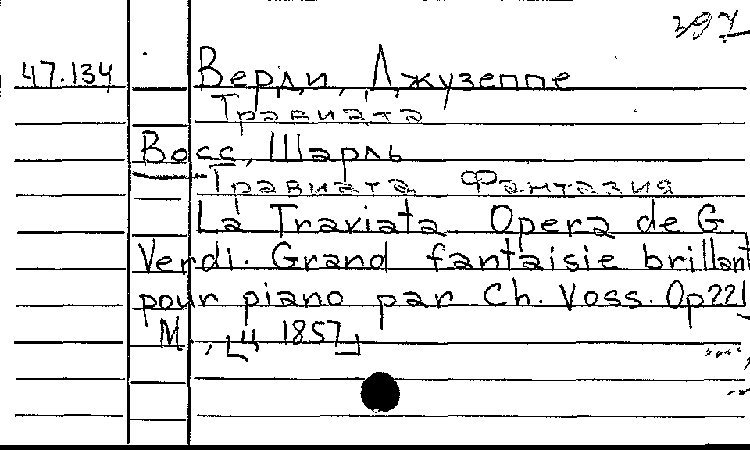 397
47.134 Верди, Джузеппе
Травиата
Восс, Шарль
Травиата Фантазия
La Traviata. Opera de G.
Verdi. Grand fantaisie brillant
pour piano par Ch. Voss. Op 221
М., [ц 1857]